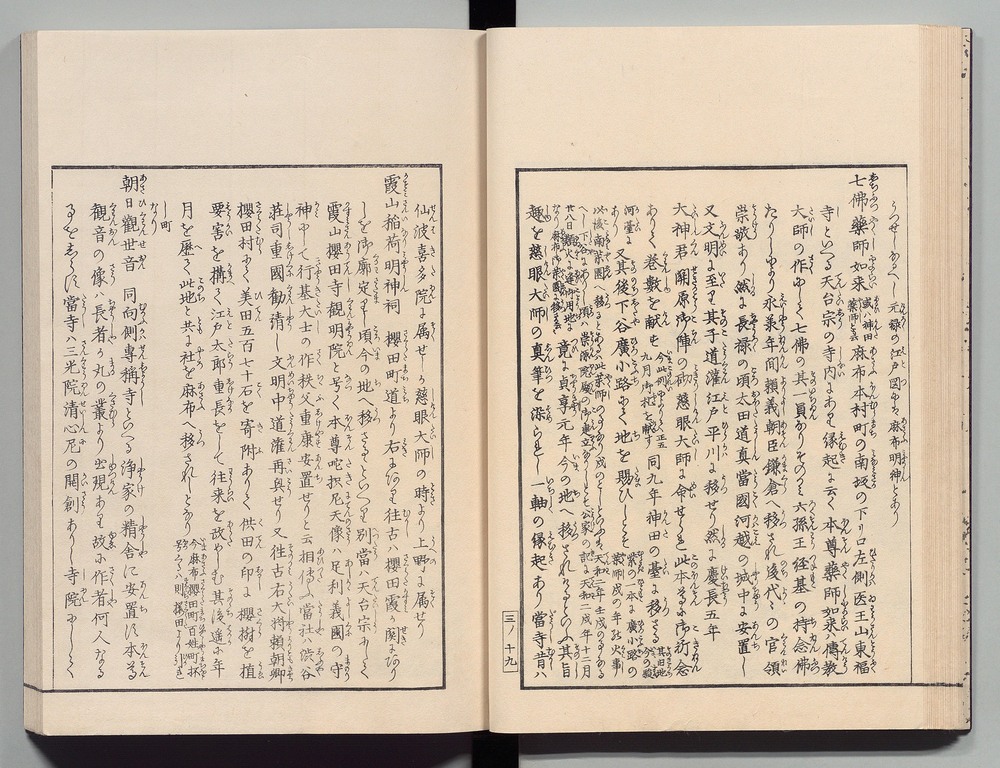 うつせしなるへし 元禄の江戸図中に麻布明神とあり
七佛藥師如来 或ハ神田藥師と云 麻布本村町の南坂の下り口左側医王山東福
寺といへる天台宗の寺内にあり縁起に云く本尊藥師如来ハ傳教
大師の作にして七佛の其一員なりそのかミ六孫王経基の持念佛
たりしなり永承年間頼義朝臣鎌倉へ移され後代々の官領
崇敬あり然に長禄の頃太田道真當國河越の城中に安置し
又文明に至り其子道灌江戸平川に移せり然に慶長五年
大神君関原御陣の砌慈眼大師に命せられ此本尊に御祈念
ありて卷數を献も 今此例により正五九月御祓を献す 同九年神田の臺に移さる 其旧地今の駿河臺なり
又其後下谷廣小路にて地を賜ひしとそ
竟に貞享元年今の地へ移されるといふ其旨
趣を慈眼大師の真筆を染られし一軸の縁起あり當寺昔ハ
三ノ十九
仙波喜多院に属せしか慈眼大師の時より上野に属せり
霞山稲荷明神祠 櫻田町道より右にあり往古ハ櫻田霞か関にあり
しを御廓定りし頃今の地へ移さるといへり別當ハ天台宗にして
霞山櫻田寺観明院と号く本尊咜枳尼天像ハ足利義國の守
神にて行基大士の作秩父重康安置せりと云相傳ふ當社ハ渋谷
荘司重國勧請し文明中道灌再興せり又往古右大将頼朝卿
櫻田村にて美田五百八十七石を寄附ありて供田の印に櫻樹を植
要害を構て江戸太郎重長をして往来を改めしむ其後遥に年
月を歴て此地と共に社を麻布へ移されしとなり 今麻布櫻田町百姓町杯号くるハ則櫻田より引し町なり
朝日観世音 同向側専稱寺といへる浄家の精舎に安置す本尊
観音の像ハ長者か丸の叢より出現あり故に作者何人なる
事をしらす當寺ハ三光院清心尼の開創ありし寺院にして